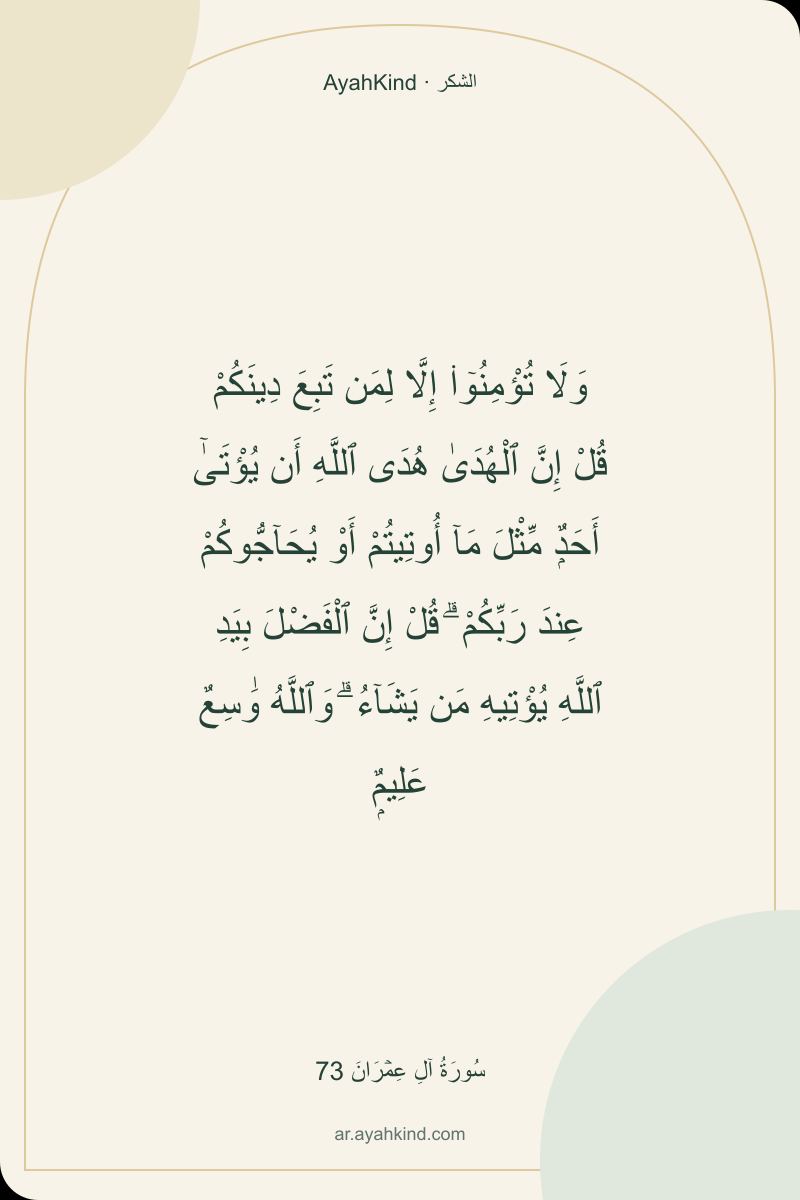 AyahKind · الشكر
وَلَا تُؤْمِنُوٓا۟ إِلَّا لِمَن تَبِعَ دِينَكُمْ
قُلْ إِنَّ ٱلْهُدَىٰ هُدَى ٱللَّهِ أَن يُؤْتَىٰٓ
أَحَدٌۭ مِّثْلَ مَآ أُوتِيتُمْ أَوْ يُحَآجُّوكُمْ
عِندَ رَبِّكُمْ ۗ قُلْ إِنَّ ٱلْفَضْلَ بِيَدِ
ٱللَّهِ يُؤْتِيهِ مَن يَشَآءُ ۗ وَٱللَّهُ وَٰسِعٌ
عَلِيمٌۭ
سُورَةُ آلِ عِمۡرَانَ 73
ar.ayahkind.com